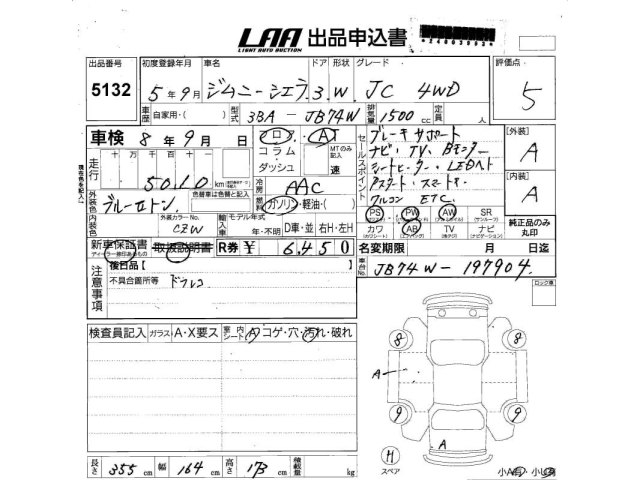 LAA 出品申込書
LIGHT AUTO AUCTION
*240039034*
出品番号 初度登録年月 車名 ドア 形状 グレード 評価点
5132 5年9月 ジムニーシエラ 3 W JC 4WD 5
車歴 自家用・( ) 型式 3BA - JB74W 排気量 1500 cc 定員 人
車検 8年9月 日
フロア AT
コラム
ダッシュ
MTのみ記入
速
走行
十万 万 千 百 十 一
5010 km
現在色を記入
色替車は色替と記入
外装色 ブルーIIトン
内装色
外装カラーNo. CZW
冷房 AAC
燃料 ガソリン・軽油・( )
輸入車 モデル年式 年・不明 D車・並 右H・左H
新車保証書 取扱説明書 R券 ¥ 6,450
セールスポイント
ブレーキサポート
ナビ・TV、Bモニター
シートヒーター・LEDヘッド
Pスタート・スマートキー
クルコン ETC
PS PW AW SR
(パワステ) (パワーウインド) (アルミホイル) (サンルーフ)
カワ AB TV ナビ
(カワシート) (エアバッグ) (ナビゲーション)
[外装]
A
[内装]
A
純正品のみ丸印
名変期限 月 日迄
車台No. JB74W-197904
ロック車
注意事項
後日品【 】
不具合箇所等 ドラレコ
検査員記入 ガラス A・X要ス 室内 シート A コゲ・穴・汚れ・破れ
8 8
A
9 9
A
H
スペア
長さ 355 cm 幅 164 cm 高さ 173 cm 積載量 kg